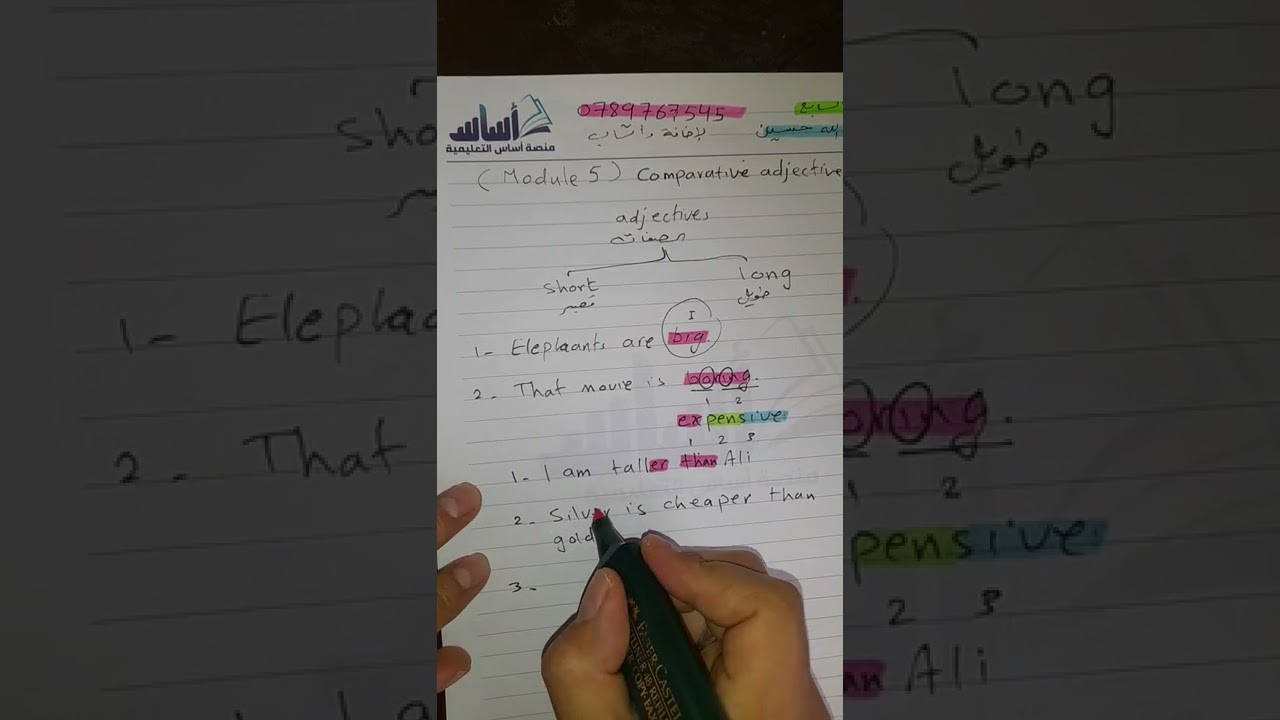 أساس
منصة أساس التعليمية
0789767545
(Module 5) Comparative adjective
adjectives
الصفات
short
قصير
long
طويل
I
1- Elephaants are big.
2- That movie is boring.
1 2
expensive
1 2 3
1- I am taller than Ali
2- Silver is cheaper than
gold
3-